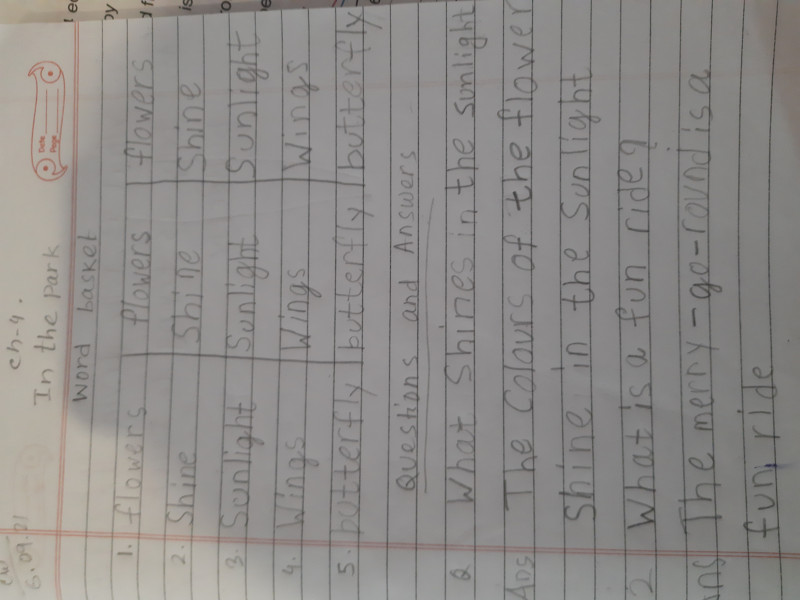 CW
6.09.21
ch-4.
Date
Page
In the park
Word basket
1. flowers flowers flowers
2. Shine Shine Shine
3. Sunlight Sunlight Sunlight
4. Wings Wings Wings
5. butterfly butterfly butterfly
Questions and Answers
Q What Shines in the sunlight
Ans The Colours of the flower
Shine in the Sunlight
2 What is a fun ride?
Ans The merry-go-round is a
fun ride